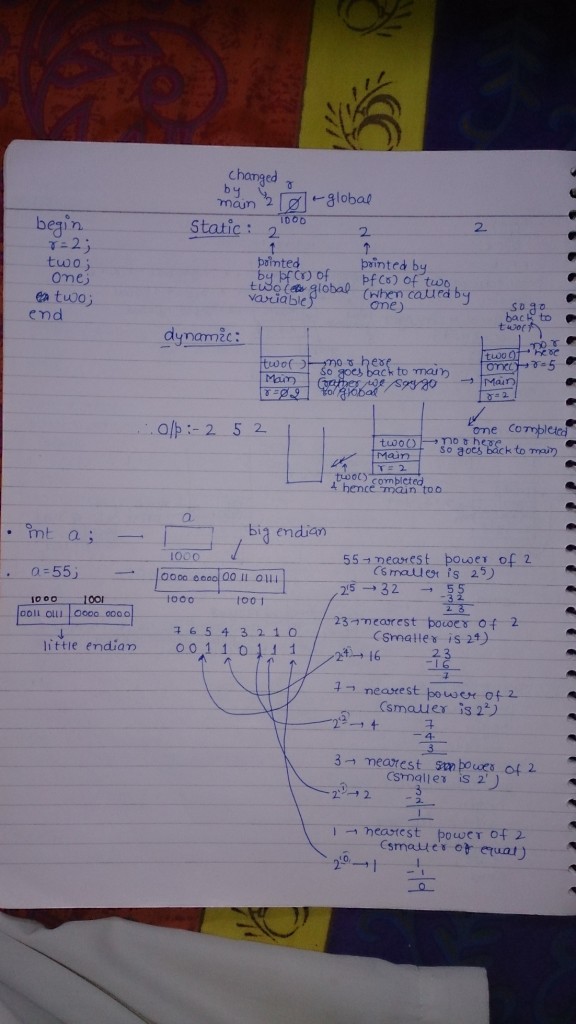 changed
by
main 2 r 0 ← global
1000
begin
r=2;
two;
one;
two;
end
Static: 2 2 2
↑
printed
by pf(r) of
two (global
variable)
↑
printed by
pf(r) of two
(when called by
one)
dynamic:
two()
Main
r=0 2
→ no r here
so goes back to main
(rather we say go
to global
so go
back to
two()
no r
here
two()
one() → r=5
Main
r=2
one completed
∴ O/p :- 2 5 2
two()
Main
r=2
→ no r here
so goes back to main
two() completed
& hence main too
• int a; → a
1000
big endian
. a=55; → 0000 0000 0011 0111
1000 1001
1000 1001
0011 0111 0000 0000
little endian
7 6 5 4 3 2 1 0
0 0 1 1 0 1 1 1
55 → nearest power of 2
(smaller is 2^5)
2^5 → 32 → 55
-32
23
23 → nearest power of 2
(smaller is 2^4)
2^4 → 16 23
-16
7
7 → nearest power of 2
(smaller is 2^2)
2^2 → 4 7
-4
3
3 → nearest power of 2
(smaller is 2^1)
2^1 → 2 3
-2
1
1 → nearest power of 2
(smaller or equal)
2^0 → 1 1
-1
0